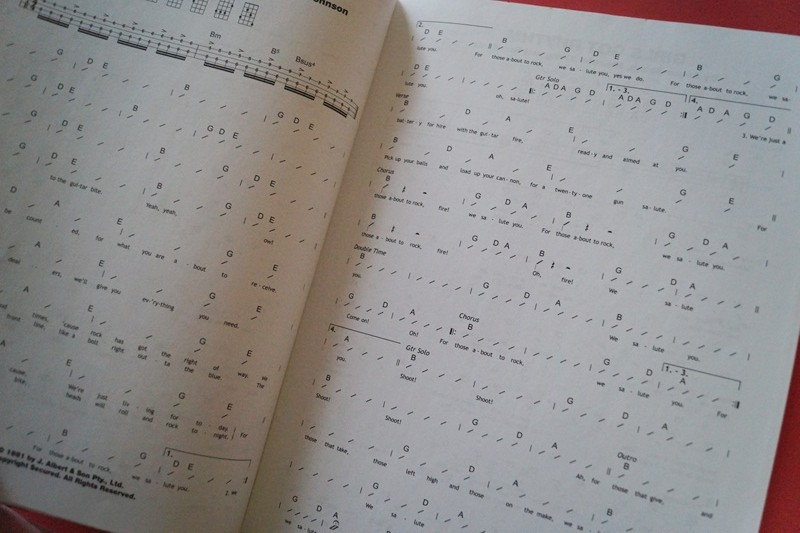 ohnson
Bm B5 Bsus4
G D E B G
G D E B G D E
G D E B G D E
to the gui-tar bite. Yeah, yeah, ow!
D A E G E
be count ed, for what you are a - bout to re - ceive.
A E G E
ers, we'll give you ev-'ry-thing you need.
A E G E
comes, 'cause rock has got the right of way. We
front line, like a bolt right out - ta the blue. The
G E
'cause, We're just try - ing for to - day, for
bite, beads will roll and rock to - night.
B G D E 1.
For those a-bout to rock, we sa - lute you. 2. We
© 1981 by J. Albert & Son Pty., Ltd.
Copyright Secured. All Rights Reserved.
2.
D E B G D E B G
lute you. For those a-bout to rock, we sa - lute you, yes we do. For those a-bout to rock, we sa-
Gtr Solo 1. - 3. 4.
D E A D A G D A D A G D A D A G D
lute you oh, sa-lute! 3. We're just a
Verse
B D A E G E
bat-ter-y for hire with the gui-tar fire, read-y and aimed at you.
B D A E G E
Pick up your balls and load up your can-non, for a twen-ty-one gun sa - lute. For
Chorus
B G D A B G D A
those a-bout to rock, fire! we sa - lute you. For those a-bout to rock, we sa - lute you.
B G D A B G D A
those a - bout to rock, fire! Oh, fire! We sa - lute
Double Time
B G D A B
you. We sa - lute you.
Chorus
G D A B G D
Come on! Oh! For those a-bout to rock, we sa - lute you. For
4. Gtr Solo 1. - 3.
A B G D A
you. Shoot! Shoot!
B G D A
Shoot! Shoot! Ah, for those that give, and
Outro
B
G D A B
those that take, those left high and those on the make, we sa -
G D A
we sa - lute
G D A